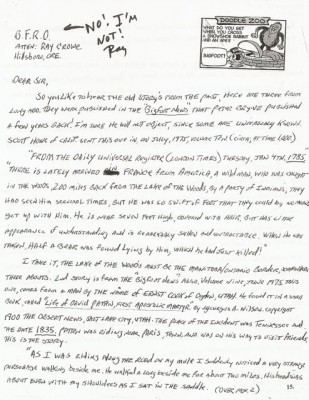 B.F.R.O.
ATTEN: RAY CROWE
Hillsboro, ORE.
NO! I'M
NOT!
Ray
DOODLE ZOO
WHAT DO YOU GET
WHEN YOU CROSS
A SNOWSHOE RABBIT
AND AN APE?
BIGFOOT!
DEAR SIR,
So you like to hear the old story's from the past, here are three from
long ago. They were published in the "Bigfoot News" that Peter Byrne published
a few years back. I'm sure he will not object, since some are unknown.
Scott House of Calif. sent this one in, on July, 1975,
"FROM THE DAILY UNIVERSAL REGISTER (LONDON TIMES) TUESDAY, JAN 4TH, 1785"
"There is lately arrived FRANCE from America, a wildman, who was caught
in the woods, 200 miles back from the Lake of the Woods, by a party of Indians, they
had seen him several times, but he was so swift of foot that they could by no means
get up with him. He is near seven feet high, covered with hair, but has little
appearance of understanding and is remarkably sullen and untractable. When he was
taken, half a bear was found lying by him, when he had just killed!"
I take it, the Lake of the Woods must be the Manitoba/Ontario border,
there abouts. 2nd story is from the "Bigfoot News" also, Volume nine, June 1975 this
one, comes from a man by the name of Ernest Cook of Ogden, Utah. He found it in a used
book, called "Life of David Patten, First Apostolic Martyr" by Lycurgus A. Wilson. Copyright
1900 The Deseret News, Salt Lake City, Utah. The place of the incident was Tennessee and
the date 1835. Patten was riding near Paris, Tenn. and was on his way to visit friends,
this is the story.
"As I was riding along the road on my mule I suddenly noticed a very strange
personage walking beside me. He walked along beside me for about two miles. His head was
about even with my shoulders as I sat in the saddle. (OVER PAGE 2)
13.